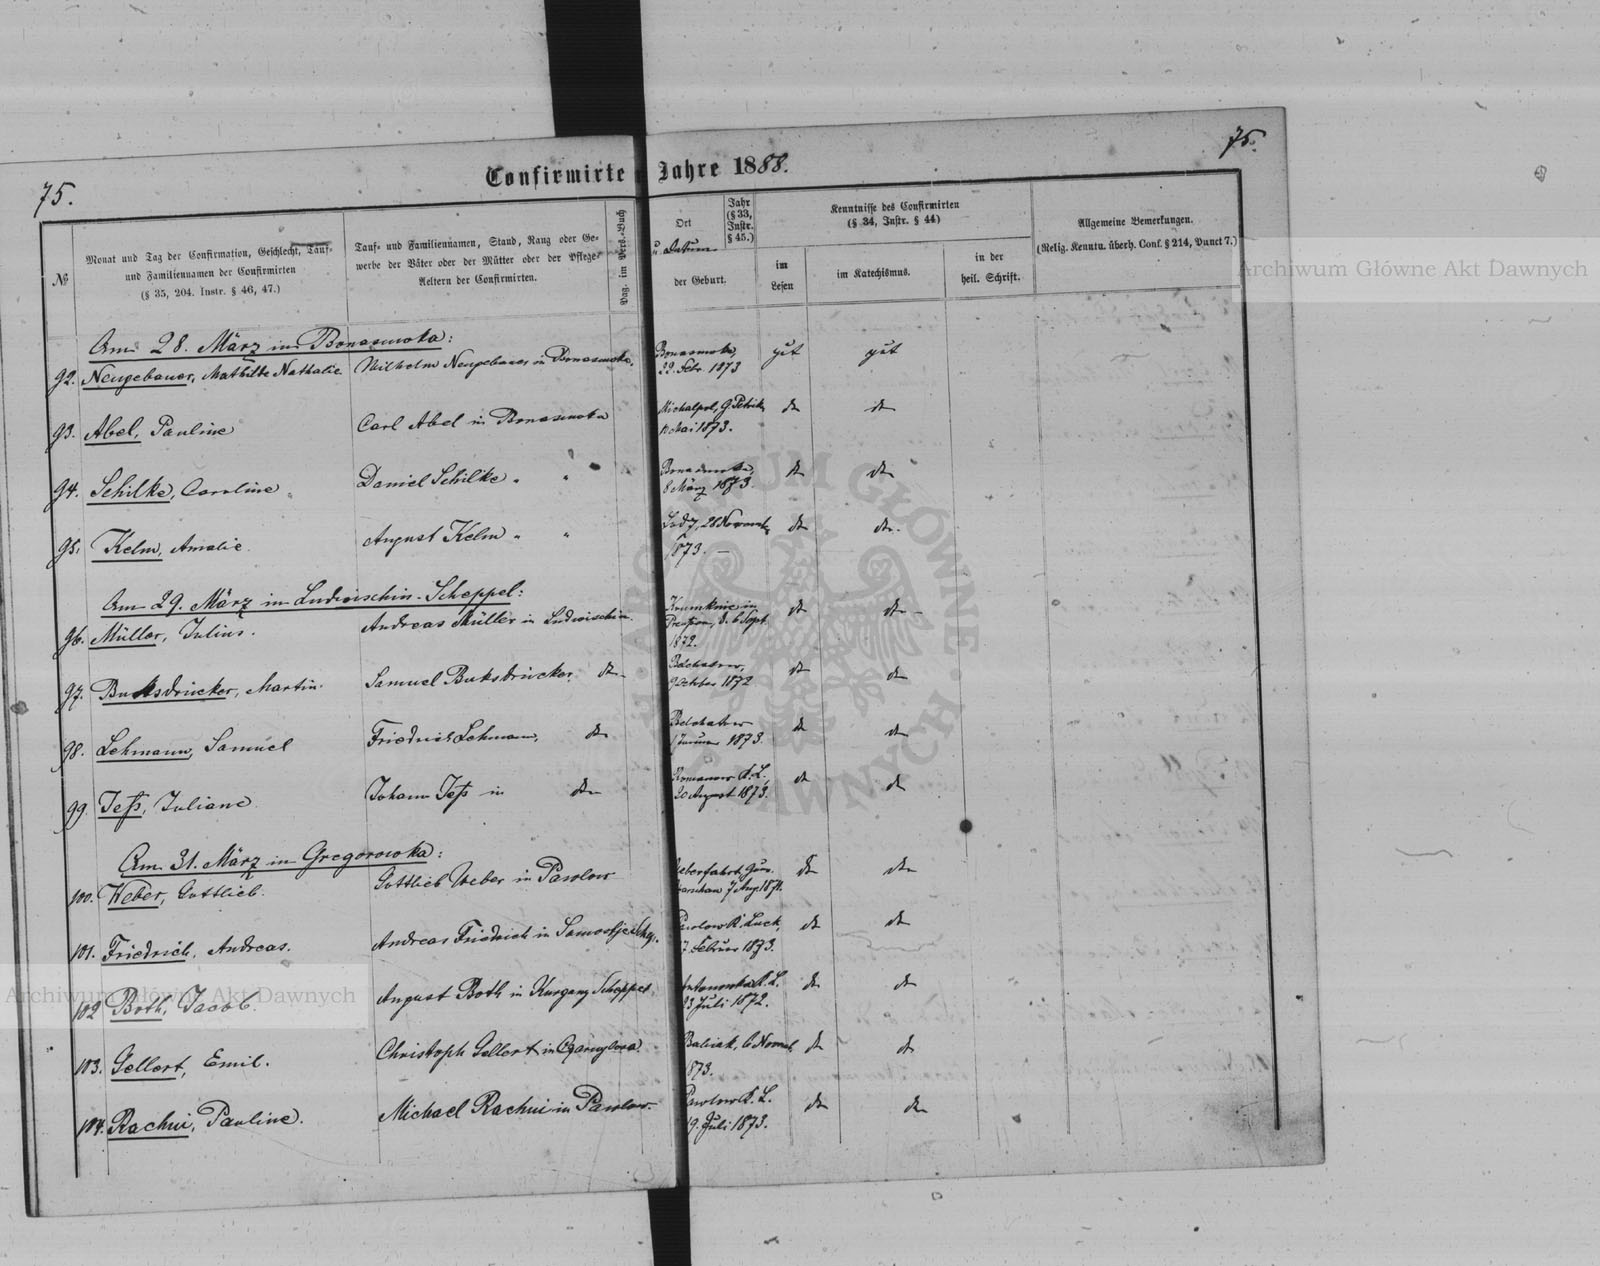 75.
75.
Confirmirte Jahre 1888.
№
Monat und Tag der Confirmation, Geschlecht, Tauf-
und Familiennamen der Confirmirten
(§ 35, 204. Instr. § 46, 47.)
Tauf- und Familiennamen, Stand, Rang oder Ge-
werbe der Väter oder der Mütter oder der Pflege-
Aeltern der Confirmirten.
Pag. im Pers.-Buch
Ort
u. Datum
der Geburt.
Jahr
(§ 33,
Instr.
§ 45.)
Kenntnisse des Confirmirten
(§ 34, Instr. § 44)
im
Lesen
im Katechismus.
in der
heil. Schrift.
Allgemeine Bemerkungen.
(Relig. Kenntn. überh. Conf. § 214, Punct 7.)
Am 28. März in Bonasowka:
92. Neugebauer, Mathilde Nathalie Wilhelm Neugebauer in Bonasowka. Bonasowka, gut gut
22. Febr. 1873
93. Abel, Pauline Carl Abel in Bonasowka Michalpol, G. do do
Mai 1873.
94. Schilke, Caroline Daniel Schilke " " do do
8 März 1873.
95. Kelm, Amalie. August Kelm " " Lodz, 28 do do.
1873. —
Am 29. März in Ludwischin-Scheppel:
96. Müller, Julius. Andreas Müller in Ludwischin. in do do
Preussen, d. 6 Sept.
1872.
97. Buksdrucker, Martin. Samuel Buksdrucker. do Belchatow, do do
October 1872
98. Lehmann, Samuel Friedrich Lehmann, do Belchatow do do
Januar 1873.
99. Jeß, Juliane Johann Jeß in do Romanow K. L. do do
20 August 1873.
Am 31. März in Gregorowka:
100. Weber, Gottlieb. Gottlieb Weber in Pawlow Ueberfahrt, Guv. do do
Warschau 7 Aug. 1871.
101. Friedrich, Andreas. Andreas Friedrich in Pawlow K. Luck, do do
7. Februar 1873.
102 Both, Jacob. August Both in Kurgany Scheppel Antonowka K. L. do do
23 Juli 1872.
103. Gellert, Emil. Christoph Gellert in 6 Novemb. do do
1873.
104. Rachui, Pauline. Michael Rachui in Pawlow. Pawlow K. L. do do
19. Juli 1873.
Archiwum Główne Akt Dawnych
Archiwum Główne Akt Dawnych
ARCHIWUM GŁÓWNE AKT DAWNYCH